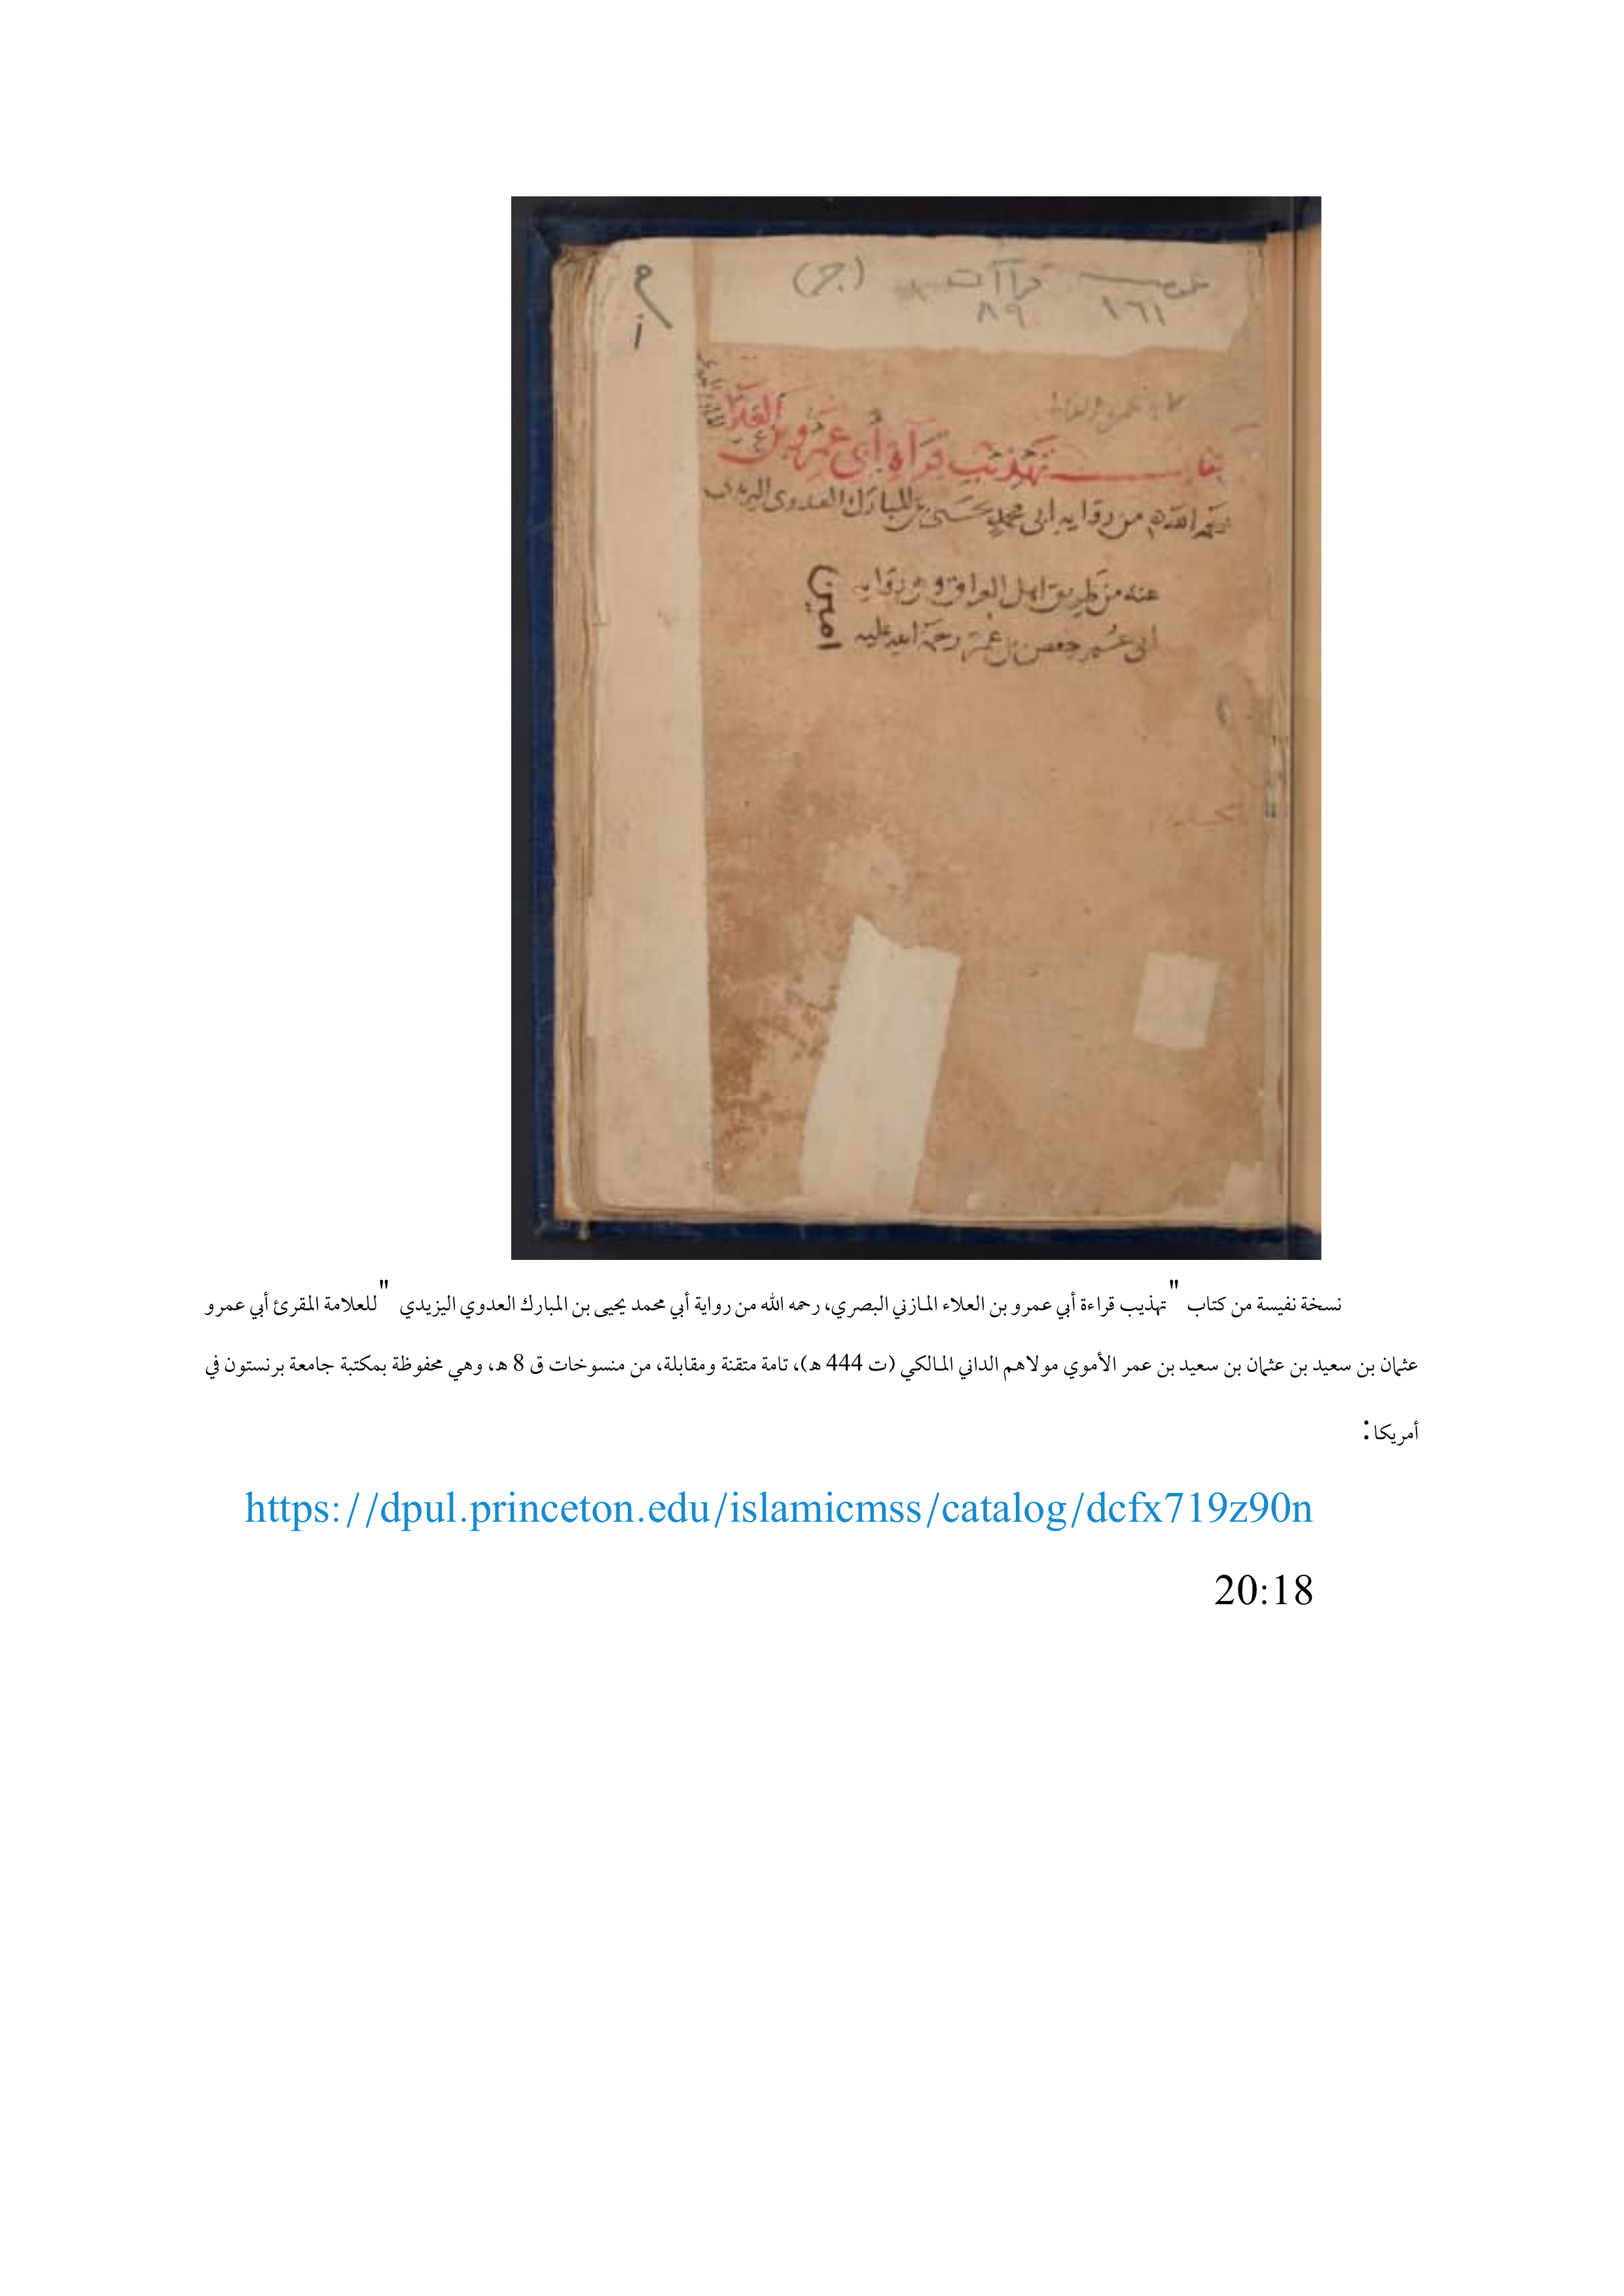 عمومية قراآت (جر)
١٦١ ٨٩
أ
العلا
كتاب تهذيب قرآة أبى عمرو بن
رحمه الله من رواية ابى محمد يحيى بن المبارك العدوى اليزيدى
عنه من طريق اهل العراق ورواية
ابى عمر حفص بن عمر رحمة الله عليه
امين
نسخة نفيسة من كتاب "تهذيب قراءة أبي عمرو بن العلاء المازني البصري، رحمه الله من رواية أبي محمد يحيى بن المبارك العدوي اليزيدي "للعلامة المقرئ أبي عمرو
عثمان بن سعيد بن عثمان بن سعيد بن عمر الأموي مولاهم الداني المالكي (ت 444 هـ)، تامة متقنة ومقابلة، من منسوخات ق 8 هـ، وهي محفوظة بمكتبة جامعة برنستون في
أمريكا:
https://dpul.princeton.edu/islamicmss/catalog/dcfx719z90n
20:18